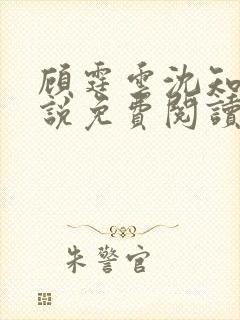 顾霆雲沈知
說免費閱讀
朱警官